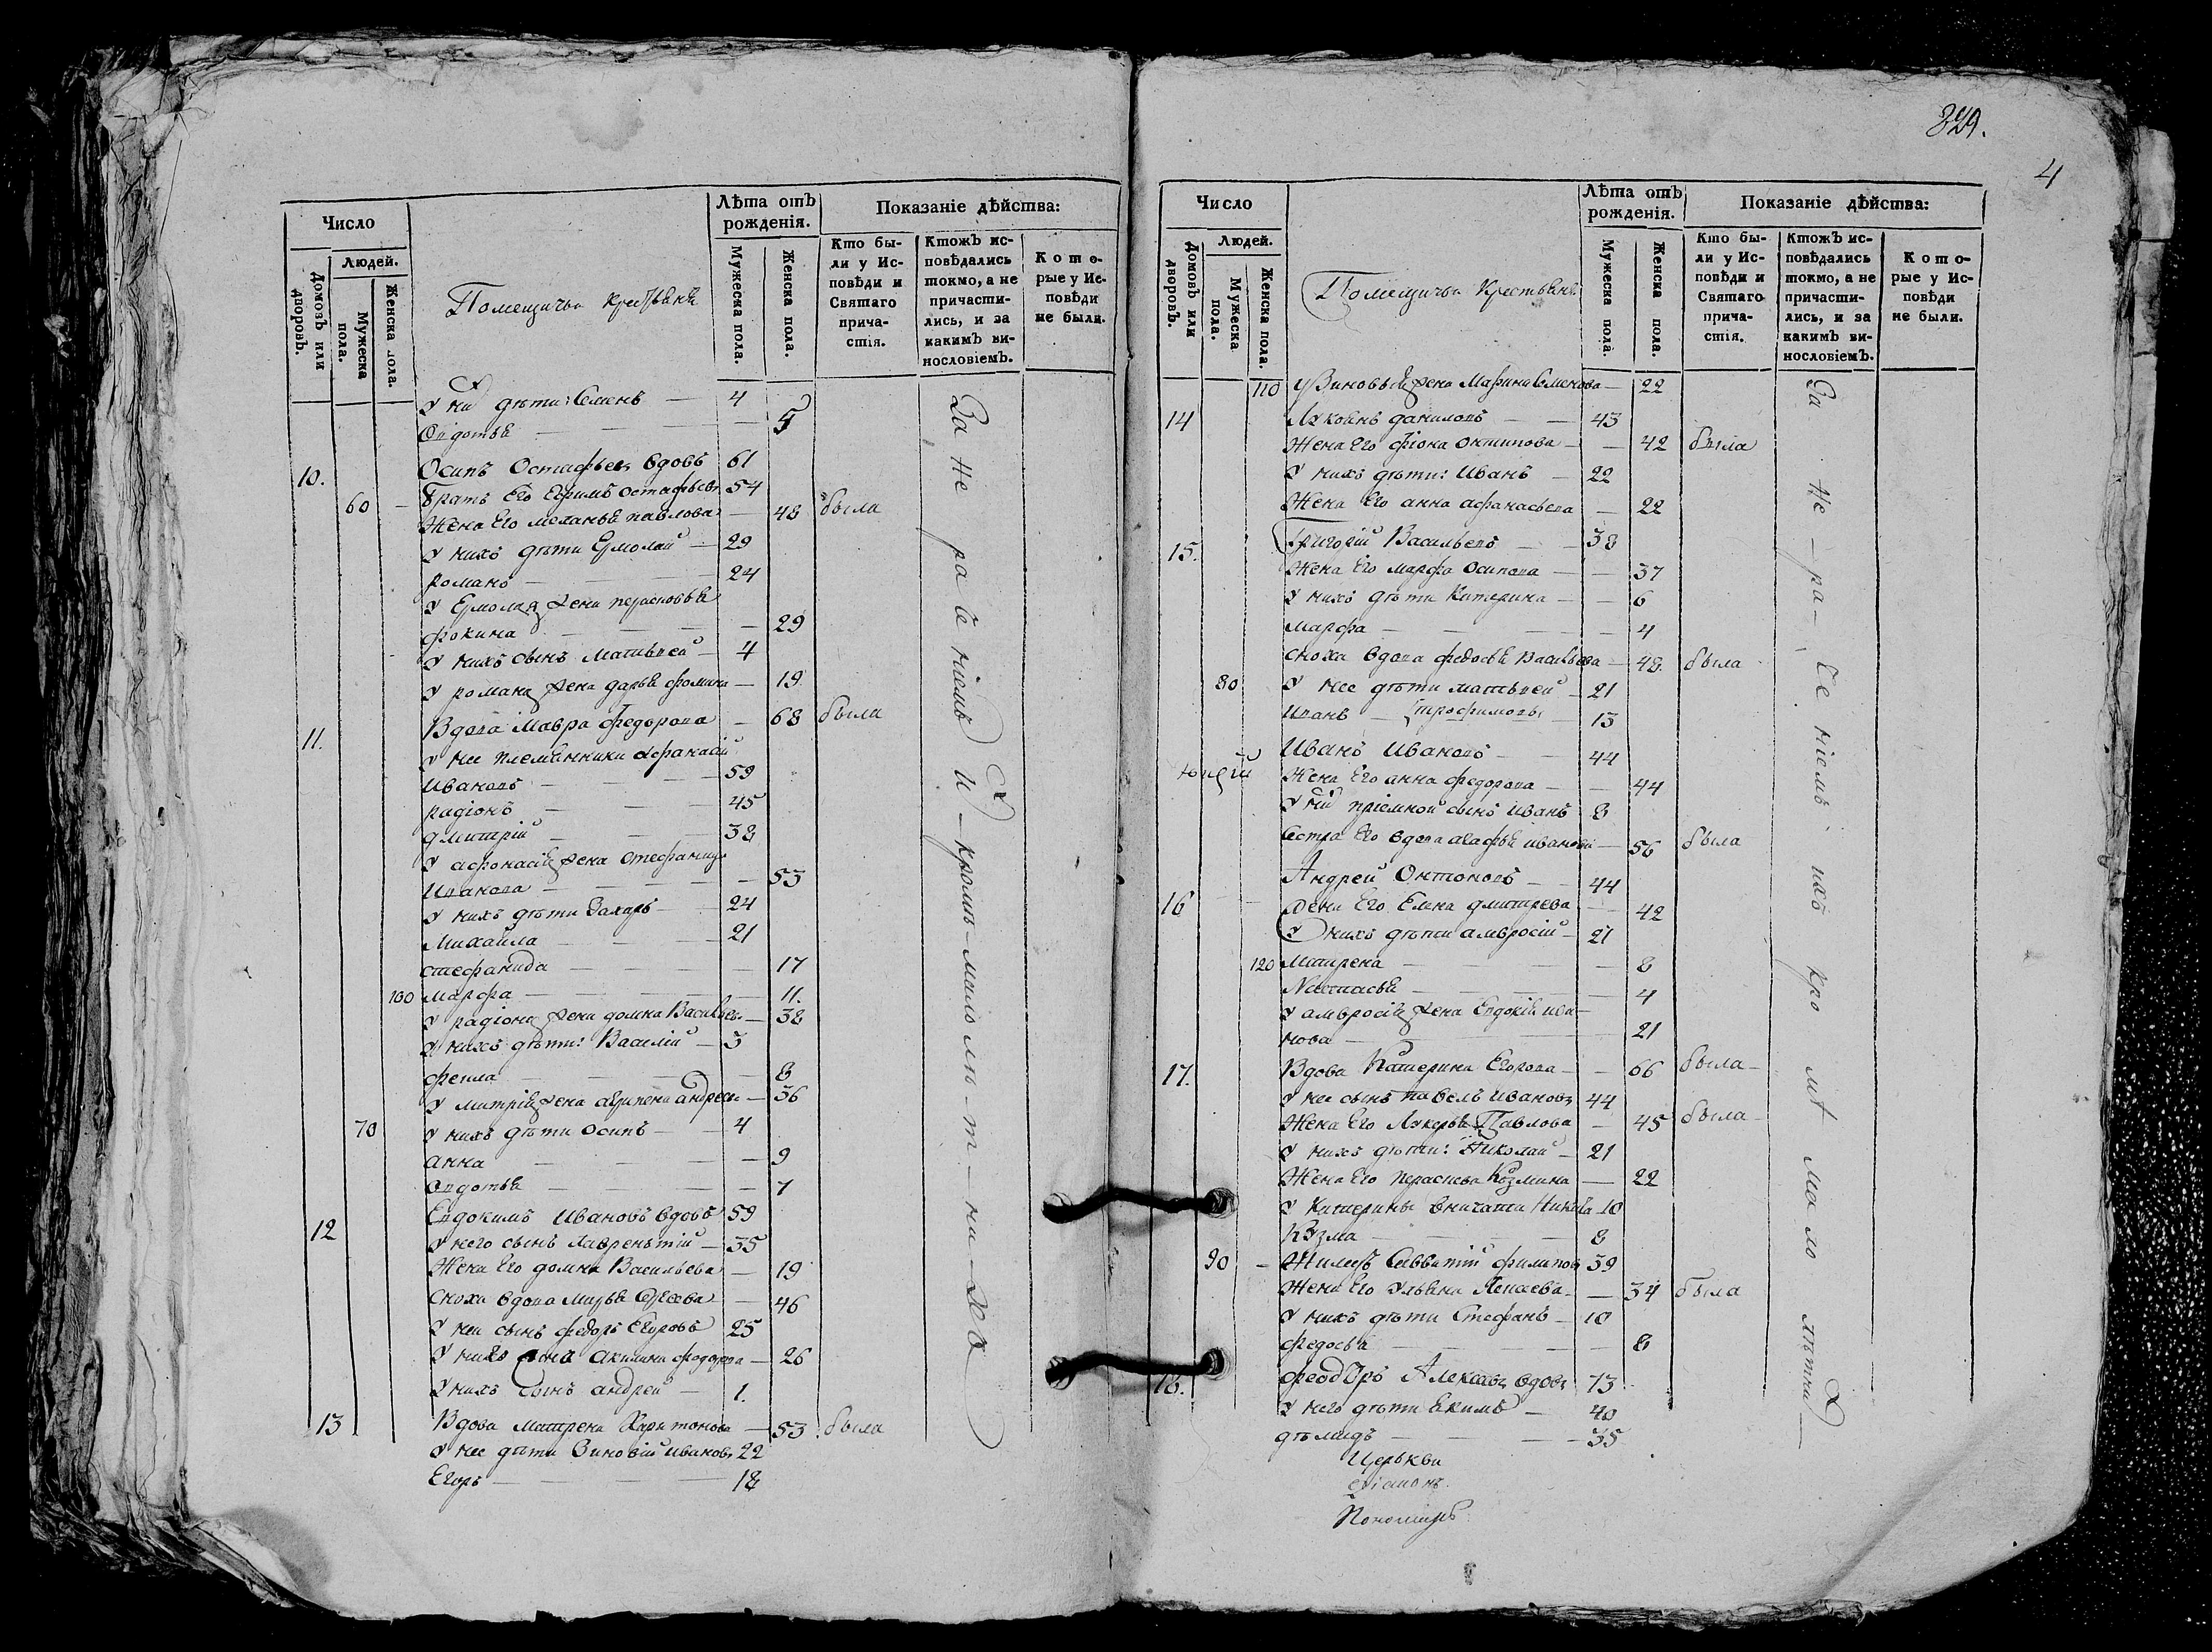 Число
Людей.
Домовъ или дворовъ.
Мужеска пола.
Женска пола.
Помещичьи крестьяне
Лѣта отъ рожденія.
Мужеска пола.
Женска пола.
Показаніе дѣйства:
Кто были у Исповѣди и Святаго причастія.
Ктожъ исповѣдались токмо, а не причастились, и за какимъ винословіемъ.
Которые у Исповѣди не были.
У них дѣти: Семенъ — 4
Овдотья — 5
10. Осипъ Остафьевъ вдовъ 61
60 Братъ Его Ефимъ Остафьевъ 54
Жена Его меланья павлова — 48 была
У нихъ дѣти Ермолай — 29
романъ — 24
У Ермолая жена прасковья
фокина — 29
У нихъ сынъ Матьвей — 4
У романа жена дарья фомина — 19
11. Вдова Мавра федорова — 68 была
У нее племянники афанасий
Ивановъ — 59
радіонъ — 45
дмитрій — 38
У афонасія жена Стефанида
Иванова — 53
У нихъ дѣти Захаръ — 24
Михайла — 21
стефанида — 17
100 марфа — 11.
У радіона жена домна Васильева — 38
У нихъ дѣти: Василій — 3
фекла — 8
У митрія жена агрипена андреева — 36
70 У нихъ дѣти осипъ — 4
анна — 9
Овдотья — 7
12 Евдокимъ Ивановъ вдовъ 59
У него сынъ лаврентій — 35
Жена Его домна Васильева — 19
Сноха вдова марья — 46
У неи сынъ федоръ Егоровъ 25
У нихъ жена акилина федорова — 26
У нихъ сынъ андрей — 1.
13 Вдова матрена Харитонова — 53 была
У нее дѣти Зиновій Ивановъ 22
Егоръ — 18
За не ра че ніемъ и кромѣ мало лѣ т ни хъ
329.
4
Число
Людей.
Домовъ или дворовъ.
Мужеска пола.
Женска пола.
Помещичьи крестьяне
Лѣта отъ рожденія.
Мужеска пола.
Женска пола.
Показаніе дѣйства:
Кто были у Исповѣди и Святаго причастія.
Ктожъ исповѣдались токмо, а не причастились, и за какимъ винословіемъ.
Которые у Исповѣди не были.
110 У Зиновья жена Марина Семенова — 22
14 Лукьянъ даниловъ — 43
Жена Его фіона онтипова — 42 была
У нихъ дѣти: Иванъ — 22
Жена Его анна афанасьева — 22
15. Григорій Васильевъ — 38
Жена Его марфа осипова — 37
У нихъ дѣти Катерина — 6
марфа — 4
сноха вдова федосья Васильева — 48. была
80 У нее дѣти матьвей — 21
Иванъ — трофимовы — 13
Иванъ Ивановъ — 44
Жена Его анна федорова — 44
У них пріемной сынъ иванъ 8
Сестра Его вдова агафья иванова — 56 была
16 Андрей Онтоновъ — 44
жена Его Елена дмитрева — 42
У нихъ дѣти амвросій — 21
120 Матрена — 8
Настасья — 4
У амвросія жена Евдокія ива-
нова — 21
17. Вдова Катерина Егорова — 66 была
У нее сынъ павелъ Ивановъ 44
Жена Его Лукерья Павлова — 45 была
У нихъ дѣти: Николай — 21
Жена Его Парасковья Козмина — 22
У Катерины внучата 10
Кузма — 8
90 Жилецъ Савватій филиповъ 39
Жена Его Ульяна — 34 была
У нихъ дѣти Стефанъ — 10
федосья — 8
18. феодоръ Алексѣевъ вдовъ 73
У него дѣти Екимъ — 40
35
Церькви
Пономарь
За не ра че ніемъ ихъ кро мѣ ма ло лѣтни